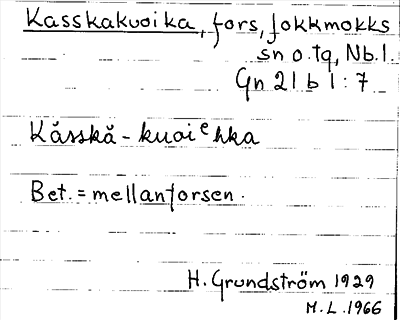 Kasskakuoika, fors, Jokkmokks
sn o. tg, Nb. l.
Gn 21 b 1 : 7
Kȧsskȧ - kuoiᵉhka
Bet. = mellanforsen.
H. Grundström 1929
M. L. 1966